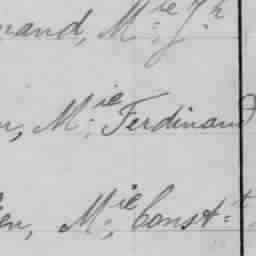 nand, M.ie J.h
n, M.ie Ferdinand
en, M.ie Const.t